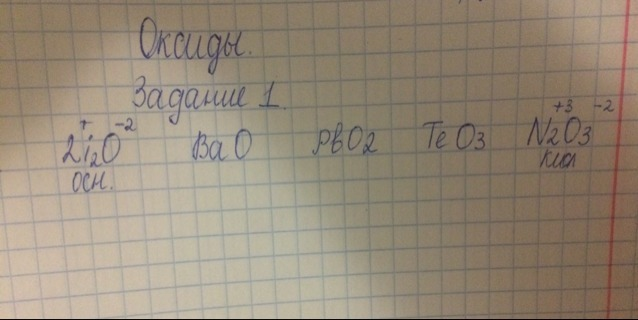 Оксиды.
Задание 1.
+ -2 +3 -2
Li₂O BaO PbO₂ TeO₃ N₂O₃
осн. кисл